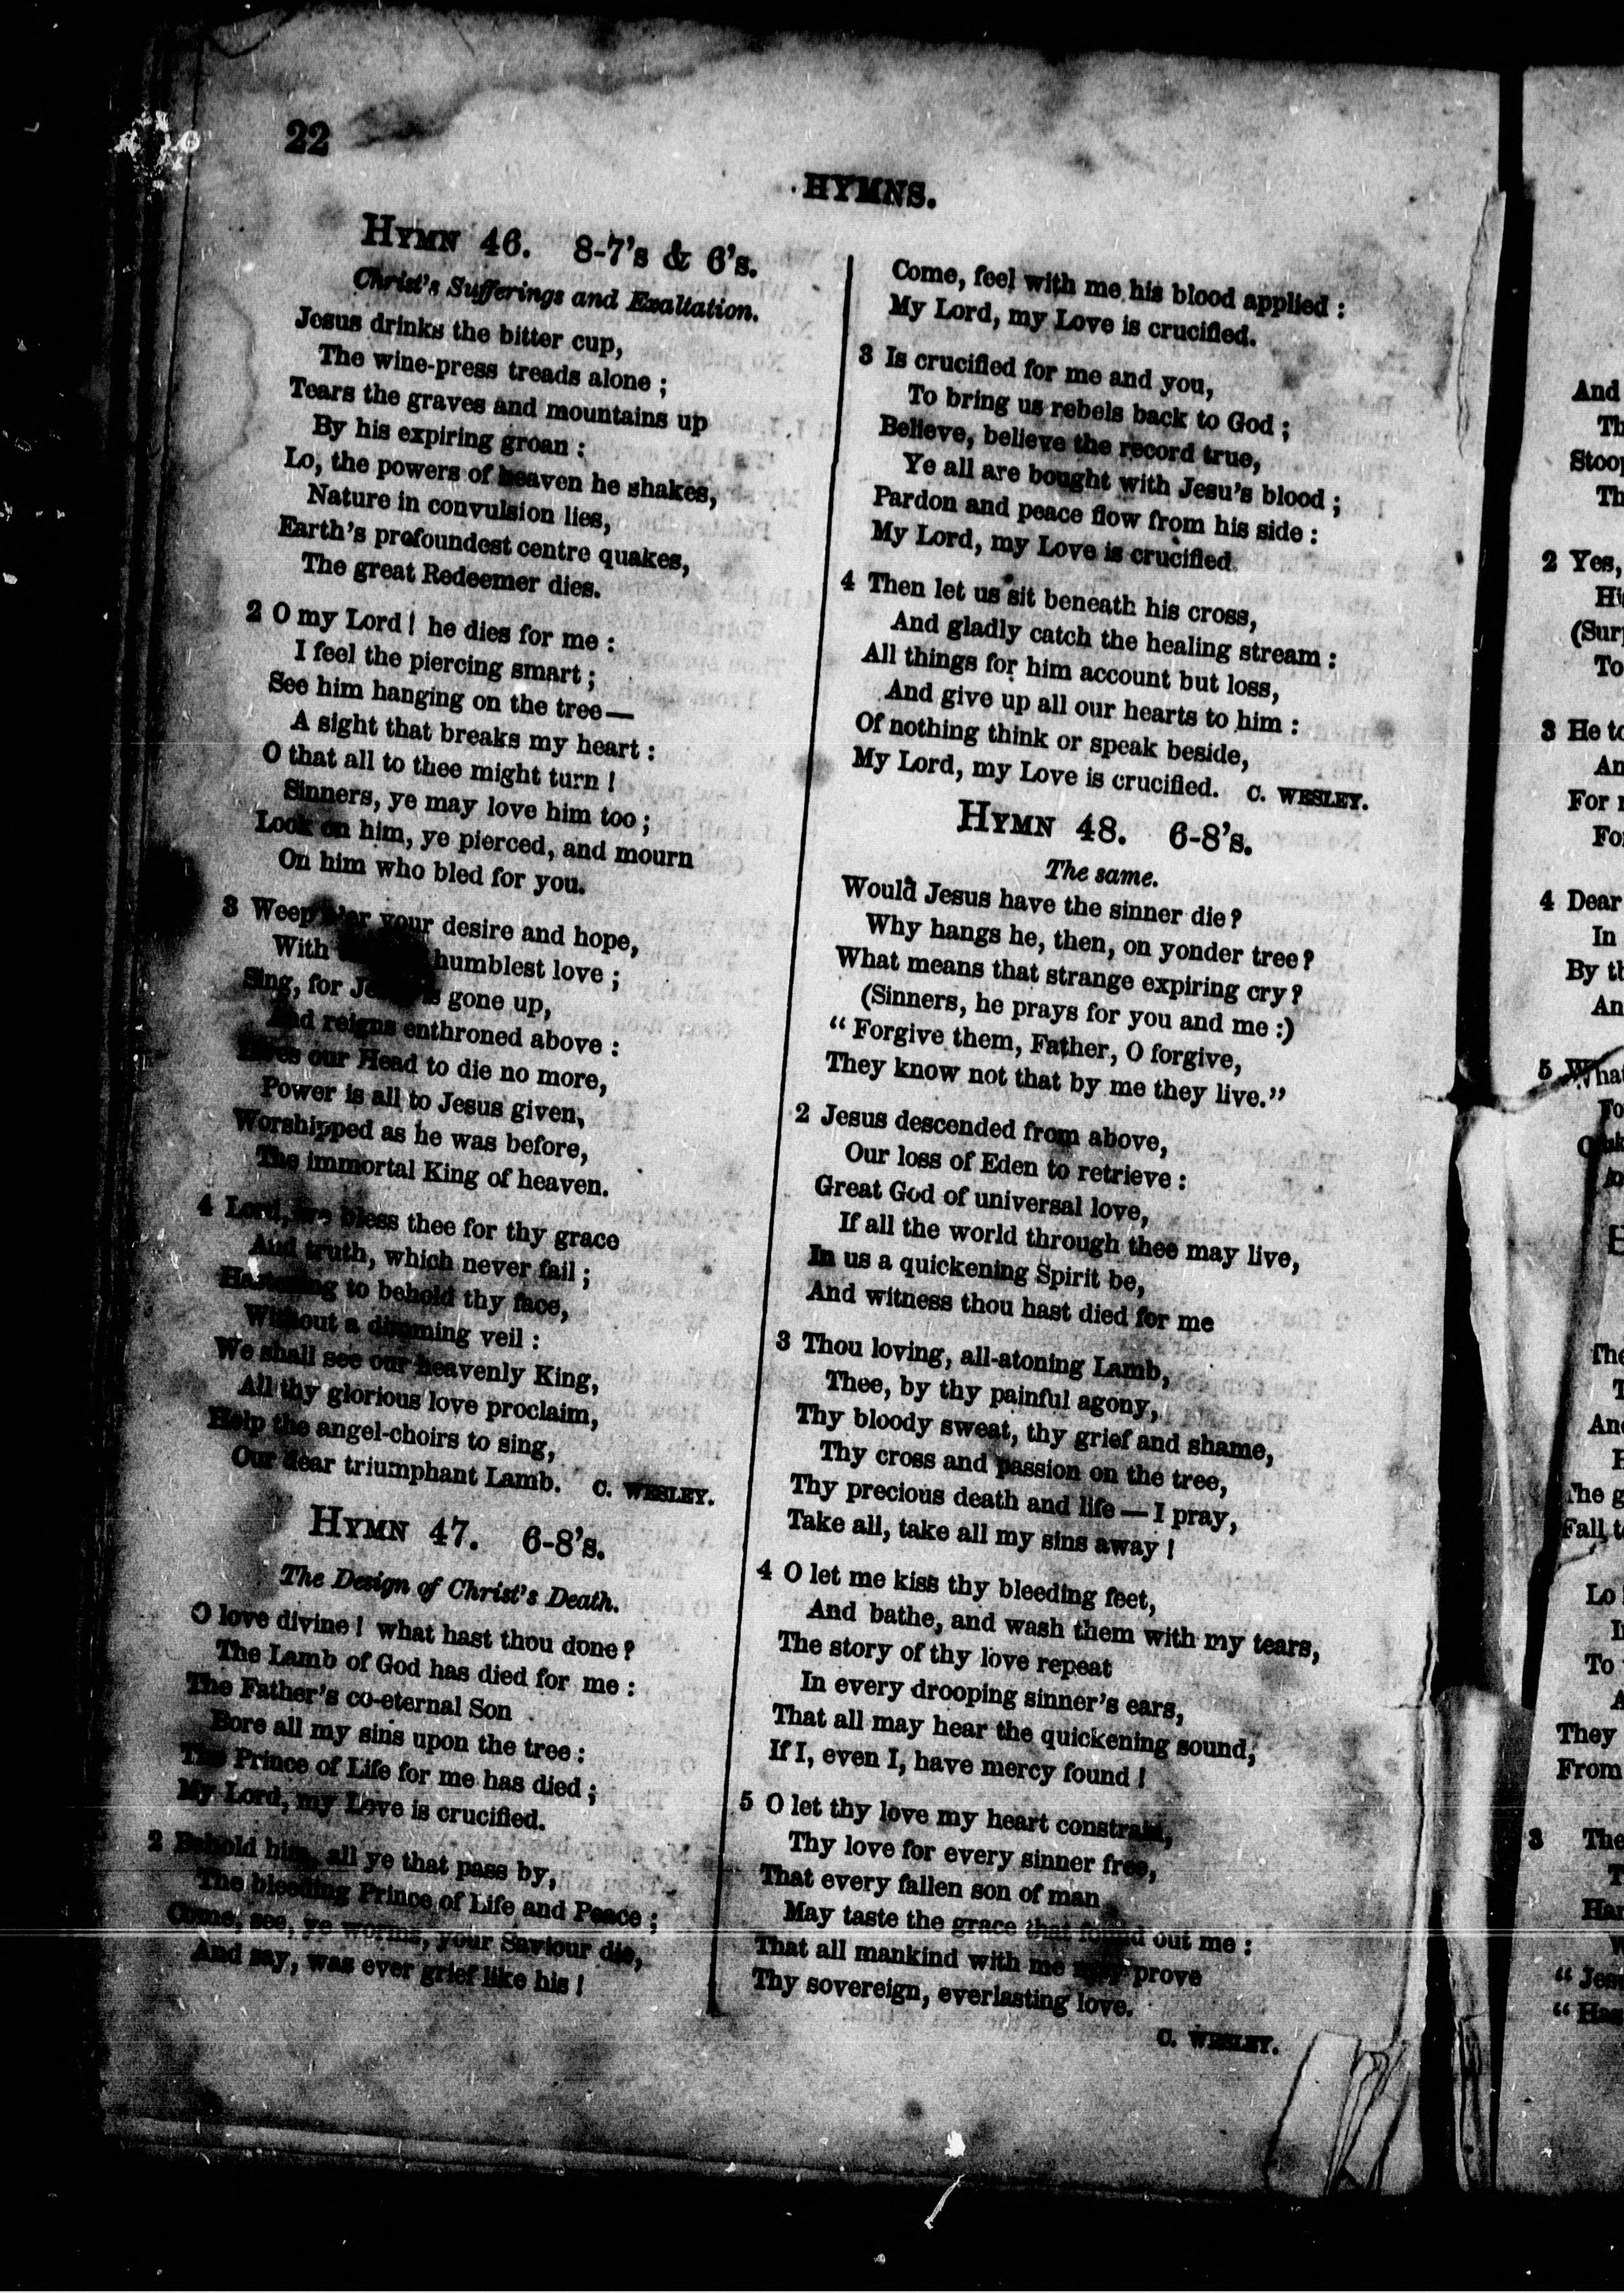 22
HYMNS.
HYMN 46. 8-7's & 6's.
Christ's Sufferings and Exaltation.
Jesus drinks the bitter cup,
The wine-press treads alone ;
Tears the graves and mountains up
By his expiring groan :
Lo, the powers of heaven he shakes,
Nature in convulsion lies,
Earth's profoundest centre quakes,
The great Redeemer dies.
2 O my Lord ! he dies for me :
I feel the piercing smart ;
See him hanging on the tree—
A sight that breaks my heart :
O that all to thee might turn !
Sinners, ye may love him too ;
Look on him, ye pierced, and mourn
On him who bled for you.
3 Weep o'er your desire and hope,
With humblest love ;
Sing, for Jesus is gone up,
And reigns enthroned above :
Lives our Head to die no more,
Power is all to Jesus given,
Worshipped as he was before,
The immortal King of heaven.
4 Lord, we bless thee for thy grace
And truth, which never fail ;
Hastening to behold thy face,
Without a dimming veil :
We shall see our heavenly King,
All thy glorious love proclaim,
Help the angel-choirs to sing,
Our dear triumphant Lamb. C. WESLEY.
HYMN 47. 6-8's.
The Design of Christ's Death.
O love divine ! what hast thou done ?
The Lamb of God has died for me :
The Father's co-eternal Son
Bore all my sins upon the tree :
The Prince of Life for me has died ;
My Lord, my Love is crucified.
2 Behold him, all ye that pass by,
The bleeding Prince of Life and Peace ;
Come, see, ye worms, your Saviour die,
And say, was ever grief like his !
Come, feel with me his blood applied :
My Lord, my Love is crucified.
3 Is crucified for me and you,
To bring us rebels back to God ;
Believe, believe the record true,
Ye all are bought with Jesu's blood ;
Pardon and peace flow from his side :
My Lord, my Love is crucified.
4 Then let us sit beneath his cross,
And gladly catch the healing stream :
All things for him account but loss,
And give up all our hearts to him :
Of nothing think or speak beside,
My Lord, my Love is crucified. C. WESLEY.
HYMN 48. 6-8's.
The same.
Would Jesus have the sinner die ?
Why hangs he, then, on yonder tree ?
What means that strange expiring cry ?
(Sinners, he prays for you and me :)
“ Forgive them, Father, O forgive,
They know not that by me they live.”
2 Jesus descended from above,
Our loss of Eden to retrieve :
Great God of universal love,
If all the world through thee may live,
In us a quickening Spirit be,
And witness thou hast died for me
3 Thou loving, all-atoning Lamb,
Thee, by thy painful agony,
Thy bloody sweat, thy grief and shame,
Thy cross and passion on the tree,
Thy precious death and life — I pray,
Take all, take all my sins away !
4 O let me kiss thy bleeding feet,
And bathe, and wash them with my tears,
The story of thy love repeat
In every drooping sinner's ears,
That all may hear the quickening sound,
If I, even I, have mercy found !
5 O let thy love my heart constrain,
Thy love for every sinner free,
That every fallen son of man
May taste the grace that found out me :
That all mankind with me may prove
Thy sovereign, everlasting love.
C. WESLEY.
And
Th
Stoop
Th
2 Yes,
Hi
(Sur
To
3 He to
An
For
Fo
4 Dear
In
By th
An
5 What
Fo
The
T
And
H
The g
Fall t
Lo
I
To
A
They
From
3 The
T
Har
W
“ Jes
“ Ha